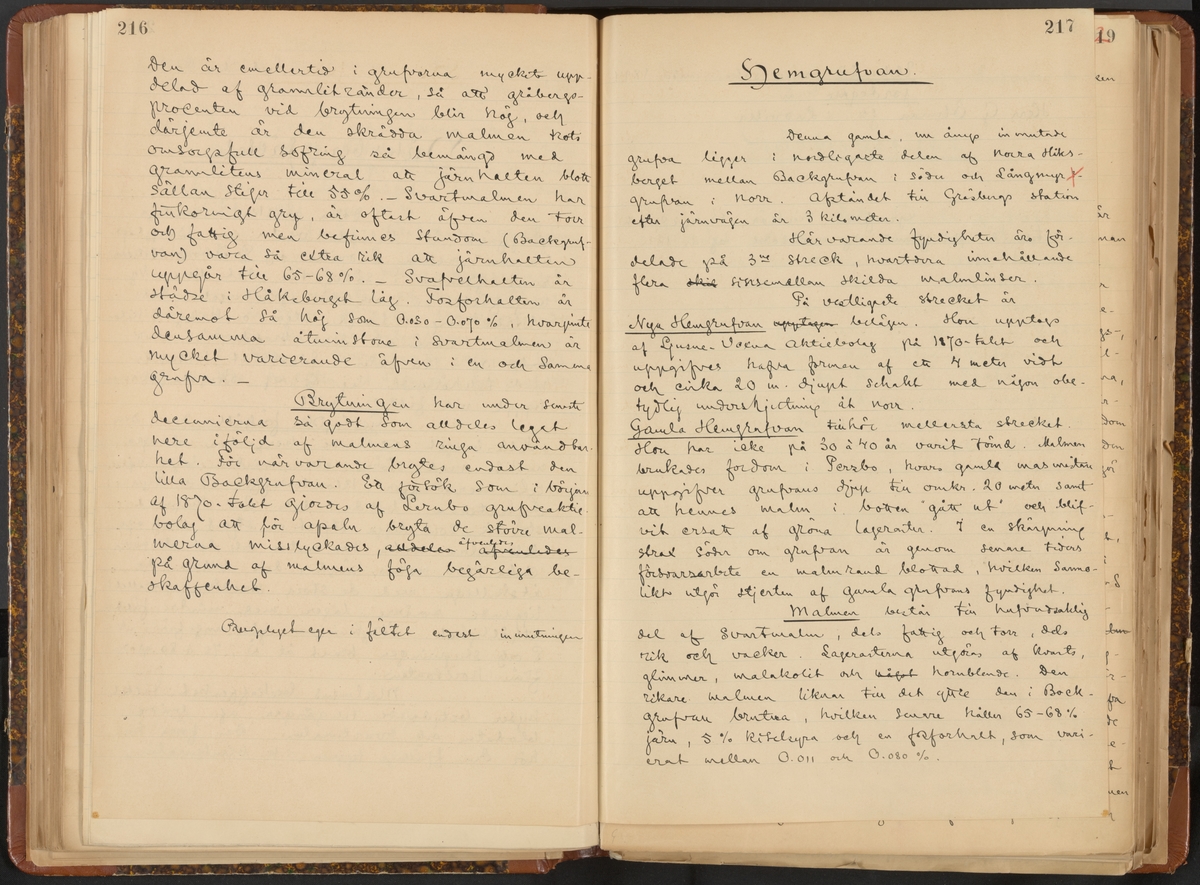 216
Den är emellertid i grufvorna mycket upp-
delad af granulitränder, så att gråbergs-
procenten vid brytningen blir hög, och
därjemte är den skrädda malmen trots
omsorgsfull sofring så bemängd med
granulitens mineral att järnhalten blott
sällan stiger till 55%. – Svartmalmen har
finkornigt gry, är oftast äfven den torr
och fattig men befinnes stundom (Backgruf-
van) vara så extra rik att järnhalten
uppgår till 65-68%. – Svafvelhalten är
städse i Håkeberget låg. Fosforhalten är
däremot så hög som 0.050-0.070%, hvarjemte
densamma åtminstone i svartmalmen är
mycket varierande äfven i en och samma
grufva. –
Brytningen har under senaste
decennierna så godt som alldeles legat
nere iföljd af malmens ringa användbar-
het. För närvarande brytes endast den
lilla Backgrufvan. Ett försök som i början
af 1870-talet gjordes af Lernbo grufveaktie-
bolag att för apeln bryta de större mal-
merna misslyckades, alldeles äfvenledes äfvenledes
på grund af malmens föga begärliga be-
skaffenhet.
Bergslaget eger i fältet endast inmutningen
217
Hemgrufvan.
Denna gamla, nu ånyo inmutade
grufva ligger i nordligaste delen af norra Håks-
berget mellan Backgrufvan i söder och Långmyr-
grufvan i norr. Afståndet till Gräsbergs station
efter järnvägen är 3 kilometer.
Härvarande fyndigheter äro för-
delade på 3ne streck, hvartdera innehållande
flera skil sinsemellan skilda malmlinser.
På vestligaste strecket är
Nya Hemgrufvan upptagen belägen. Hon upptogs
af Ljusne-Voxna Aktiebolag på 1870-talet och
uppgifves hafva formen af ett 4 meter vidt
och cirka 20 m. djupt schakt med någon obe-
tydlig underskjectning åt norr.
Gamla Hemgrufvan tillhör mellersta strecket.
Hon har icke på 30 à 40 år varit länsd. Malmen
brukades fordom i Persbo, hvars gamla masmästare
uppgifver grufvans djup till omkr. 20 meter samt
att hennes malm i botten "gått ut" och blif-
vit ersatt af gröna lagerarter. I en skärpning
strax söder om grufvan är genom senare tiders
försvarsarbete en malmrand blottad, hvilken sanno-
likt utgör stjerten af gamla grufvans fyndighet.
Malmen består till hufvudsaklig
del af svartmalm, dels fattig och torr, dels
rik och vacker. Lagerarterna utgöras af kvarts,
glimmer, malakolit och något hornblende. Den
rikare malmen liknar till det yttre den i Back-
grufvan brutna, hvilken senare håller 65-68%
järn, 5% kiselsyra och en fosforhalt, som vari-
erat mellan 0.011 och 0.080%.
19